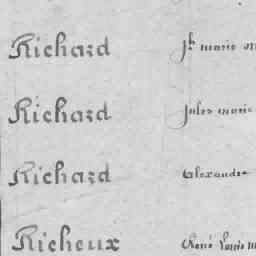 Richard Jh marie
Richard Jules marie
Richard Alexandre
Richeux René Louis m